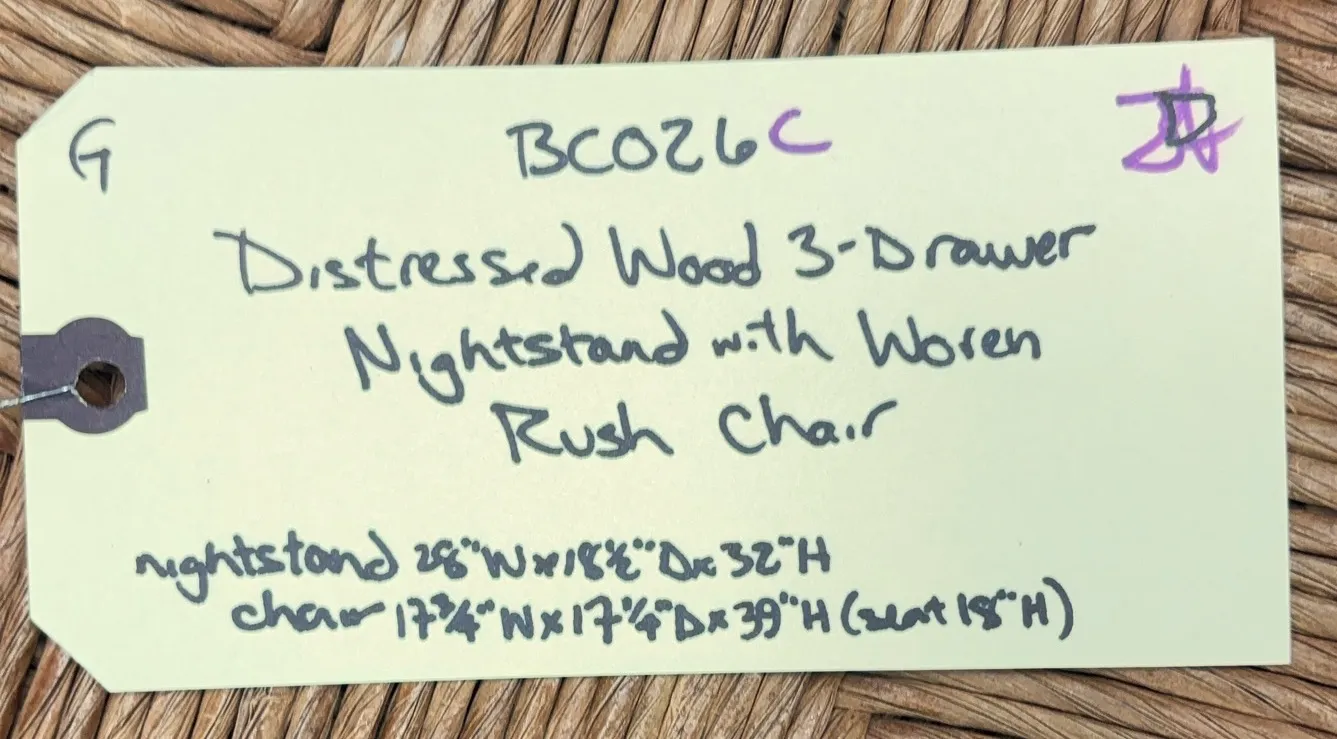 G BC026C D
Distressed Wood 3-Drawer
Nightstand with Woven
Rush Chair
nightstand 28"W x 18½"D x 32"H
chair 17¾"W x 17¼"D x 39"H (seat 18"H)